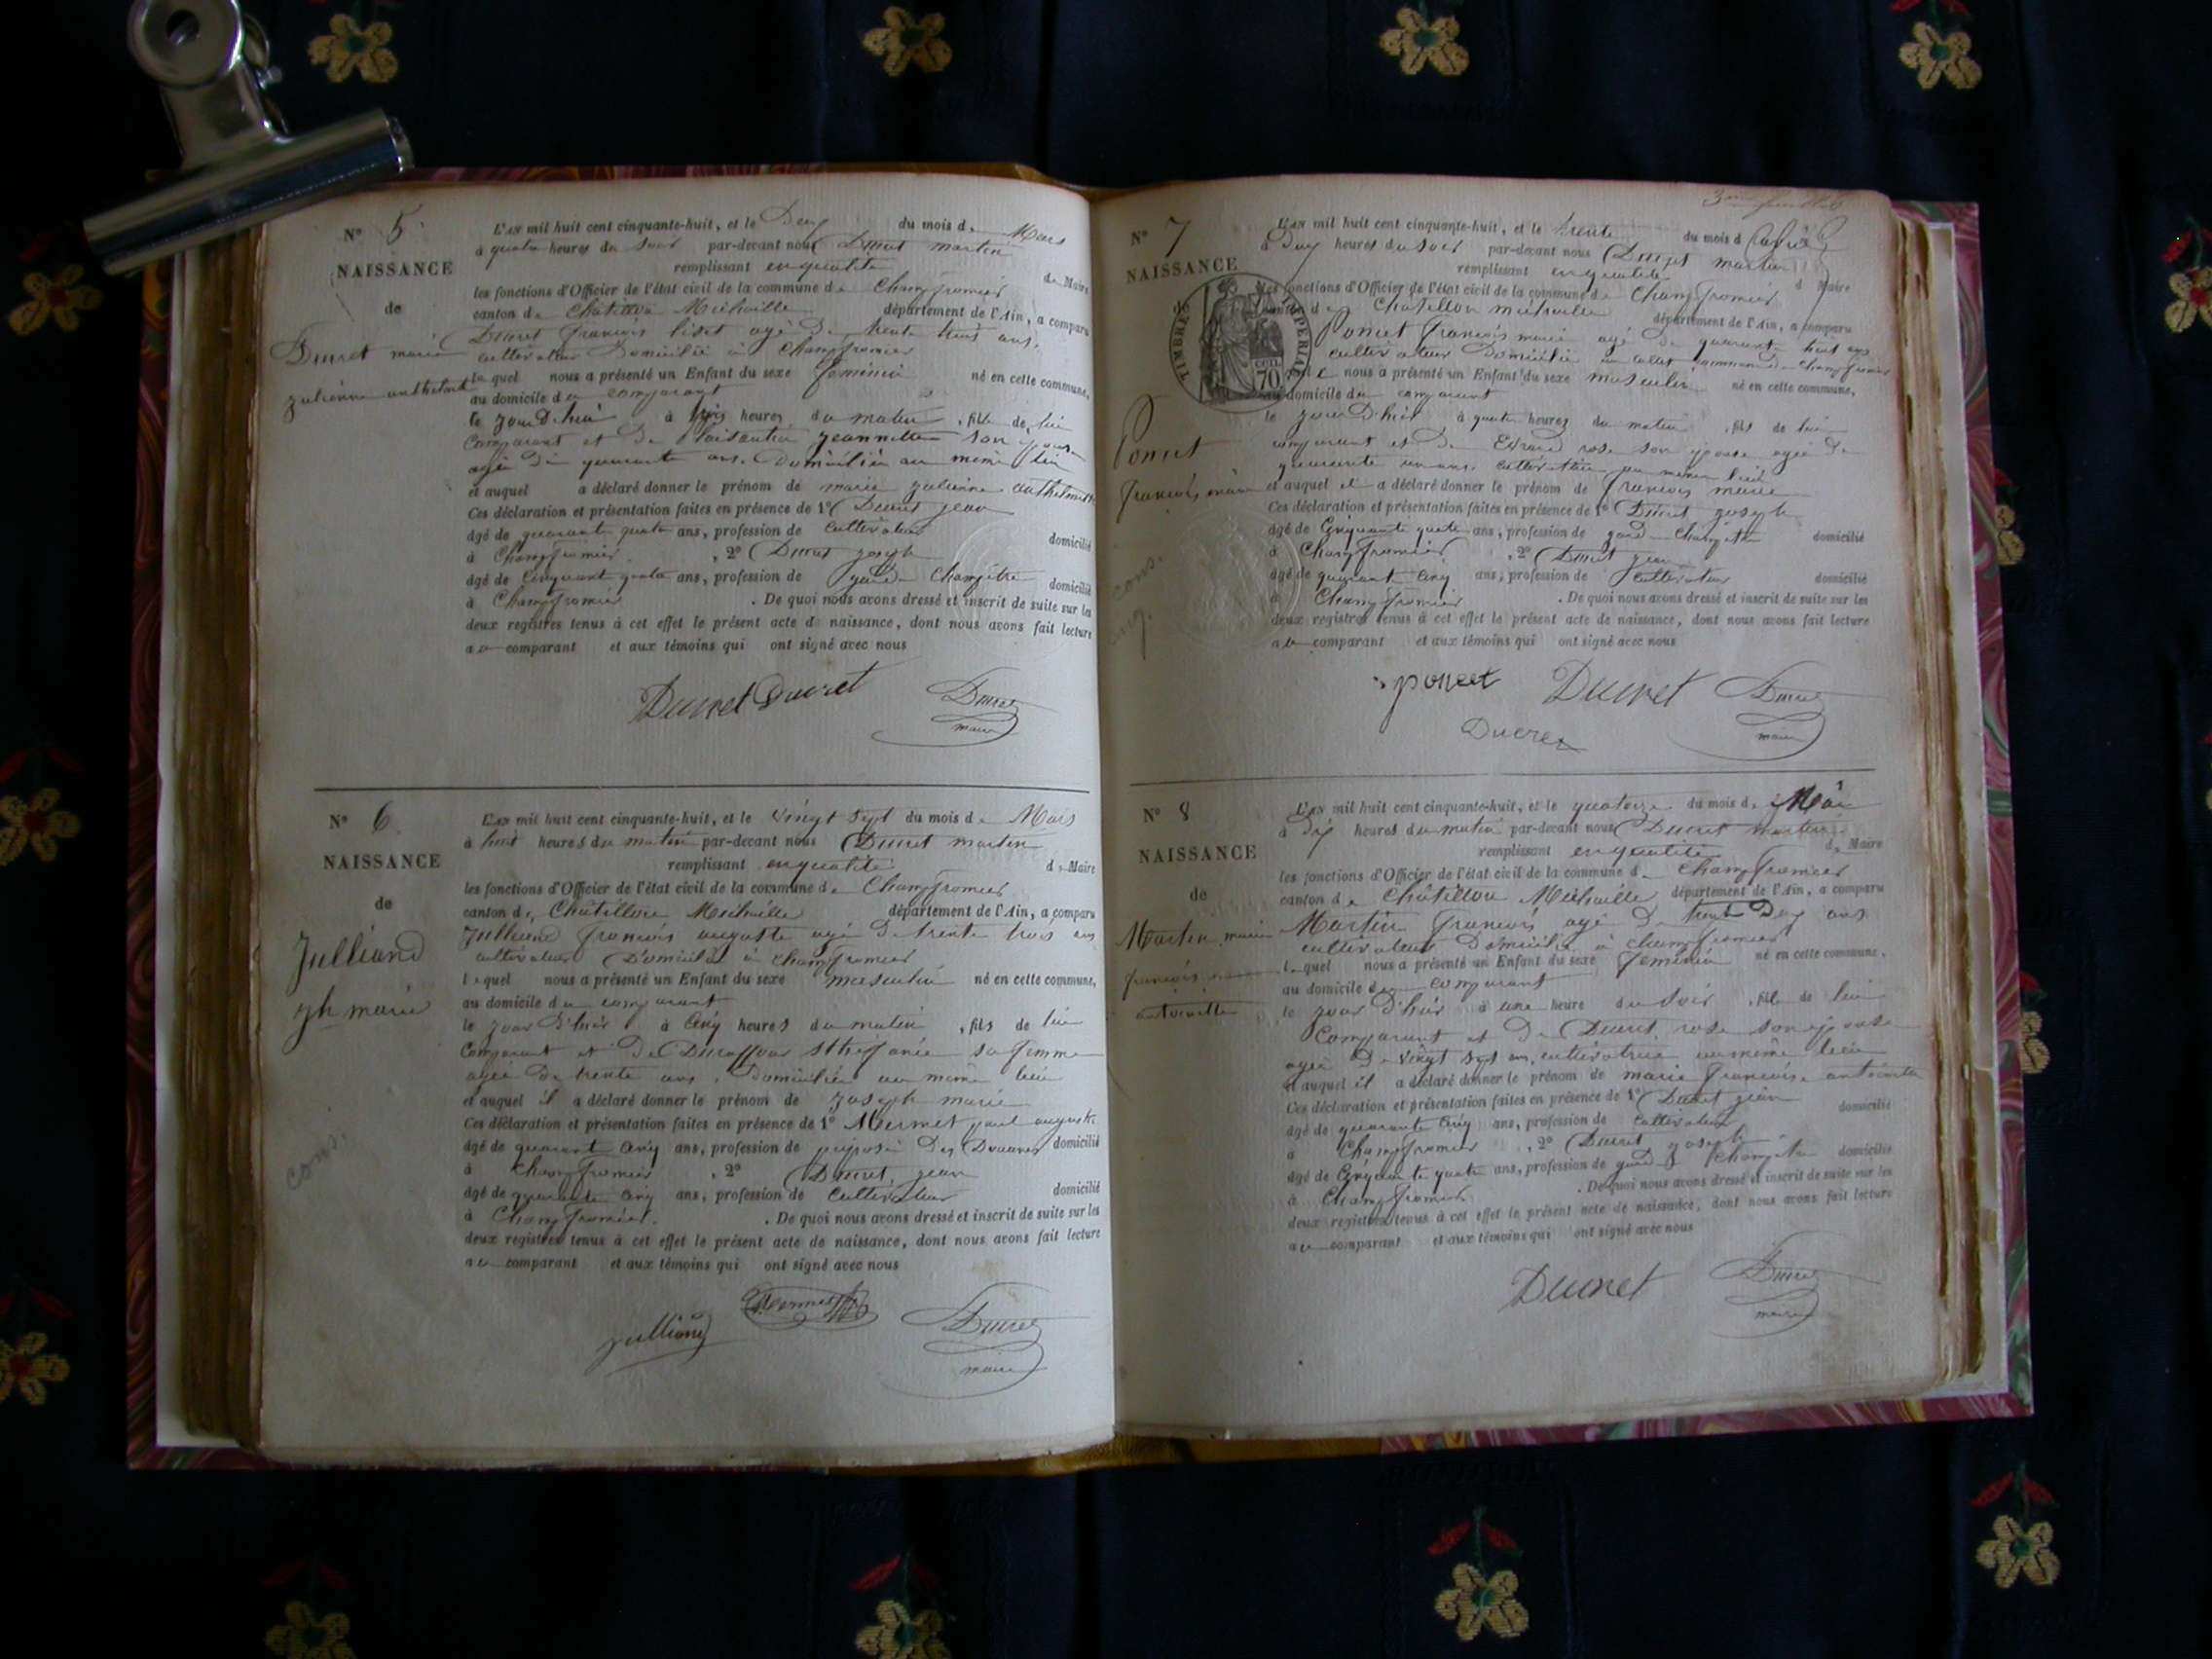 N° 5.
NAISSANCE
de
Ducret marie
julienne anthelmette
L'AN mil huit cent cinquante-huit, et le Deux du mois de Mars
à quatre heures du soir par-devant nous Ducret martin
remplissant en qualité de Maire
les fonctions d'Officier de l'état civil de la commune de Champfromier
canton de Châtillon Michaille département de l'Ain, a comparu
Ducret françois agé de trente ans,
cultivateur Domicilié à Champfromier
lequel nous a présenté un Enfant du sexe féminin né en cette commune,
au domicile du comparant
le jour D'hui à trois heures du matin, fille de lui
comparant et De jeannette son épouse
agée de quarante ans. Domiciliée au même lieu
et auquel a déclaré donner le prénom de marie julienne anthelmette
Ces déclaration et présentation faites en présence de 1° Ducret jean
âgé de quarante quatre ans, profession de cultivateur domicilié
à Champfromier, 2° Ducret joseph
âgé de Cinquante quatre ans, profession de garde Champêtre domicilié
à Champfromier. De quoi nous avons dressé et inscrit de suite sur les
deux registres tenus à cet effet le présent acte de naissance, dont nous avons fait lecture
au comparant et aux témoins qui ont signé avec nous
Ducret Ducret Ducret
maire
N° 6.
NAISSANCE
de
Julliand
jh marie
cons.
L'AN mil huit cent cinquante-huit, et le vingt sept du mois de Mars
à huit heures du matin par-devant nous Ducret martin
remplissant en qualité de Maire
les fonctions d'Officier de l'état civil de la commune de Champfromier
canton de Châtillon Michaille département de l'Ain, a comparu
Julliand françois auguste agé de trente trois ans
cultivateur Domicilié à Champfromier
lequel nous a présenté un Enfant du sexe masculin né en cette commune,
au domicile du comparant
le jour D'hier à cinq heures du matin, fils de lui
comparant et De Ducraffour sthéfanie sa femme
agée de trente ans, Domiciliée au même lieu
et auquel il a déclaré donner le prénom de joseph marie
Ces déclaration et présentation faites en présence de 1° Mermet paul auguste
âgé de quarante cinq ans, profession de préposé Des Douanes domicilié
à Champfromier, 2° Ducret jean
âgé de quarante cinq ans, profession de cultivateur domicilié
à Champfromier. De quoi nous avons dressé et inscrit de suite sur les
deux registres tenus à cet effet le présent acte de naissance, dont nous avons fait lecture
au comparant et aux témoins qui ont signé avec nous
julliand Mermet Ducret
maire
3me feuillet
N° 7
NAISSANCE
TIMBRE IMPERIAL
70
Poncet
françois marie
cons.
L'AN mil huit cent cinquante-huit, et le trente du mois d'avril
à Deux heures du soir par-devant nous Ducret martin
remplissant en qualité de Maire
les fonctions d'Officier de l'état civil de la commune de Champfromier
canton de Châtillon michaille département de l'Ain, a comparu
Poncet françois marie agé de quarante huit ans
cultivateur Domicilié commune de Champfromier
lequel nous a présenté un Enfant du sexe masculin né en cette commune,
au domicile du comparant
le jour D'hier à quatre heures du matin, fils de lui
comparant et de rose son épouse agée de
quarante un ans. cultivatrice au même lieu
et auquel il a déclaré donner le prénom de françois marie
Ces déclaration et présentation faites en présence de 1° Ducret joseph
âgé de Cinquante quatre ans, profession de garde Champêtre domicilié
à Champfromier, 2° Ducret jean
âgé de quarante cinq ans, profession de cultivateur domicilié
à Champfromier. De quoi nous avons dressé et inscrit de suite sur les
deux registres tenus à cet effet le présent acte de naissance, dont nous avons fait lecture
au comparant et aux témoins qui ont signé avec nous
poncet Ducret Ducret
Ducret maire
N° 8
NAISSANCE
de
Martin marie
françoise
antoinette
L'AN mil huit cent cinquante-huit, et le quatorze du mois de Mai
à Dix heures du matin par-devant nous Ducret martin
remplissant en qualité de Maire
les fonctions d'Officier de l'état civil de la commune de Champfromier
canton de Châtillon Michaille département de l'Ain, a comparu
Martin françois agé De trente Deux ans
cultivateur Domicilié à Champfromier
lequel nous a présenté un Enfant du sexe féminin né en cette commune,
au domicile du comparant
le jour D'hier à une heure du soir, fille de lui
comparant et De Ducret rose son épouse
agée De vingt sept ans, cultivatrice au même lieu
et auquel il a déclaré donner le prénom de marie françoise antoinette
Ces déclaration et présentation faites en présence de 1° Ducret jean
âgé de quarante cinq ans, profession de cultivateur domicilié
à Champfromier, 2° Ducret joseph
âgé de Cinquante quatre ans, profession de garde Champêtre domicilié
à Champfromier. De quoi nous avons dressé et inscrit de suite sur les
deux registres tenus à cet effet le présent acte de naissance, dont nous avons fait lecture
au comparant et aux témoins qui ont signé avec nous
Ducret Ducret
maire